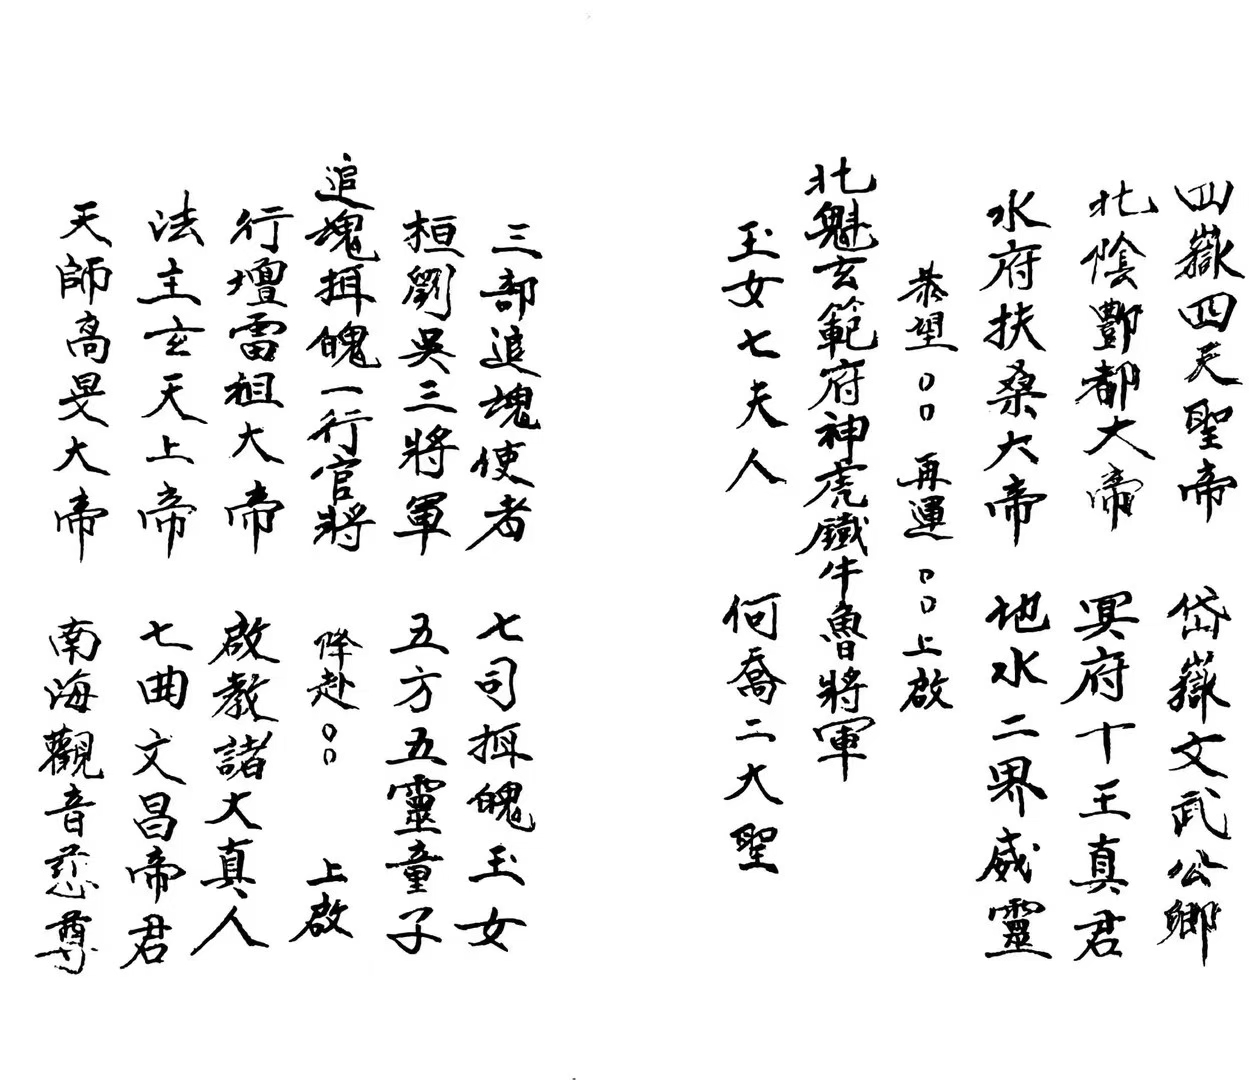 四嶽四天聖帝 岱嶽文武公卿
北陰酆都大帝 冥府十王真君
水府扶桑大帝 地水二界威靈
恭望〇〇 再運〇〇上啟
北魁玄範府神虎鐵牛魯將軍
玉女七夫人 何喬二大聖
三部追魂使者 七司挕魄玉女
桓劉吳三將軍 五方五靈童子
追魂挕魄一行官將 降赴〇〇 上啟
行壇雷祖大帝 啟教諸大真人
法主玄天上帝 七曲文昌帝君
天師高旻大帝 南海觀音慈尊